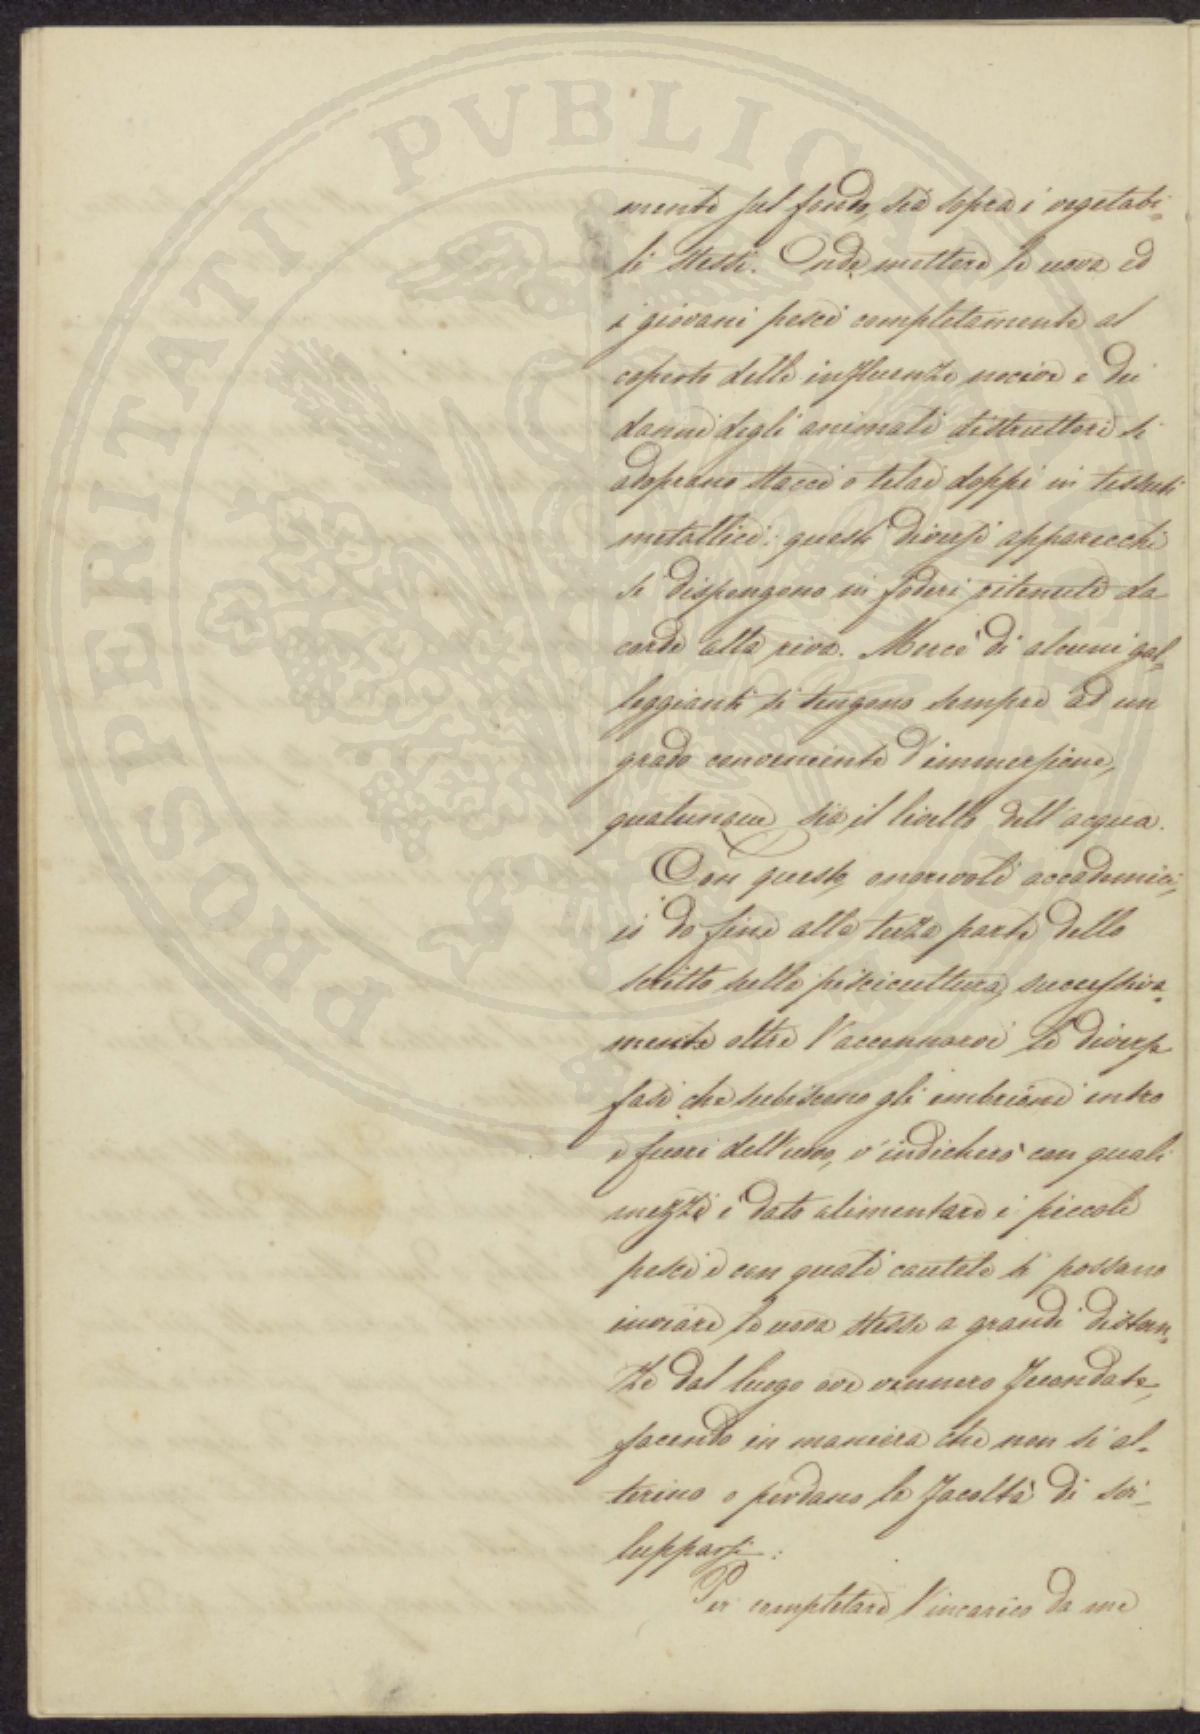 PROSPERITATI PVBLICAE
mente sul fondo, sia sopra i vegetabi-
li stessi. Onde mettere le uova ed
i giovani pesci completamente al
coperto delle influenze nocive e dei
danni degli animali distruttori si
adoprano stacci o telai doppi in tessuti
metallici: questi diversi apparecchi
si dispongono in foderi ritenuti da
corde alla riva. Mercè di alcuni gal-
leggianti si tengono sempre ad un
grado conveniente d'immersione,
qualunque sia il livello dell'acqua.
Con questo onorevoli accademici,
io do fine alla terza parte dello
scritto sulla piscicultura, successiva-
mente oltre l'accennarvi le diverse
fasi che subiscono gli embrioni entro
e fuori dell'uovo, v'indicherò con quali
mezzi è dato alimentare i piccoli
pesci e con quali cautele si possano
inviare le uova stesse a grandi distan-
ze dal luogo ove vennero fecondate,
facendo in maniera che non si al-
terino o perdano la facoltà di svi-
lupparsi.
Per completare l'incarico da me